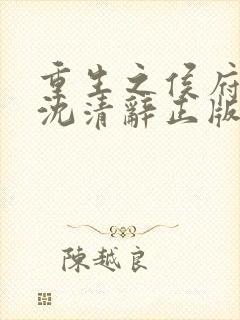 重生之侯府
沈清辭正版
陳越良